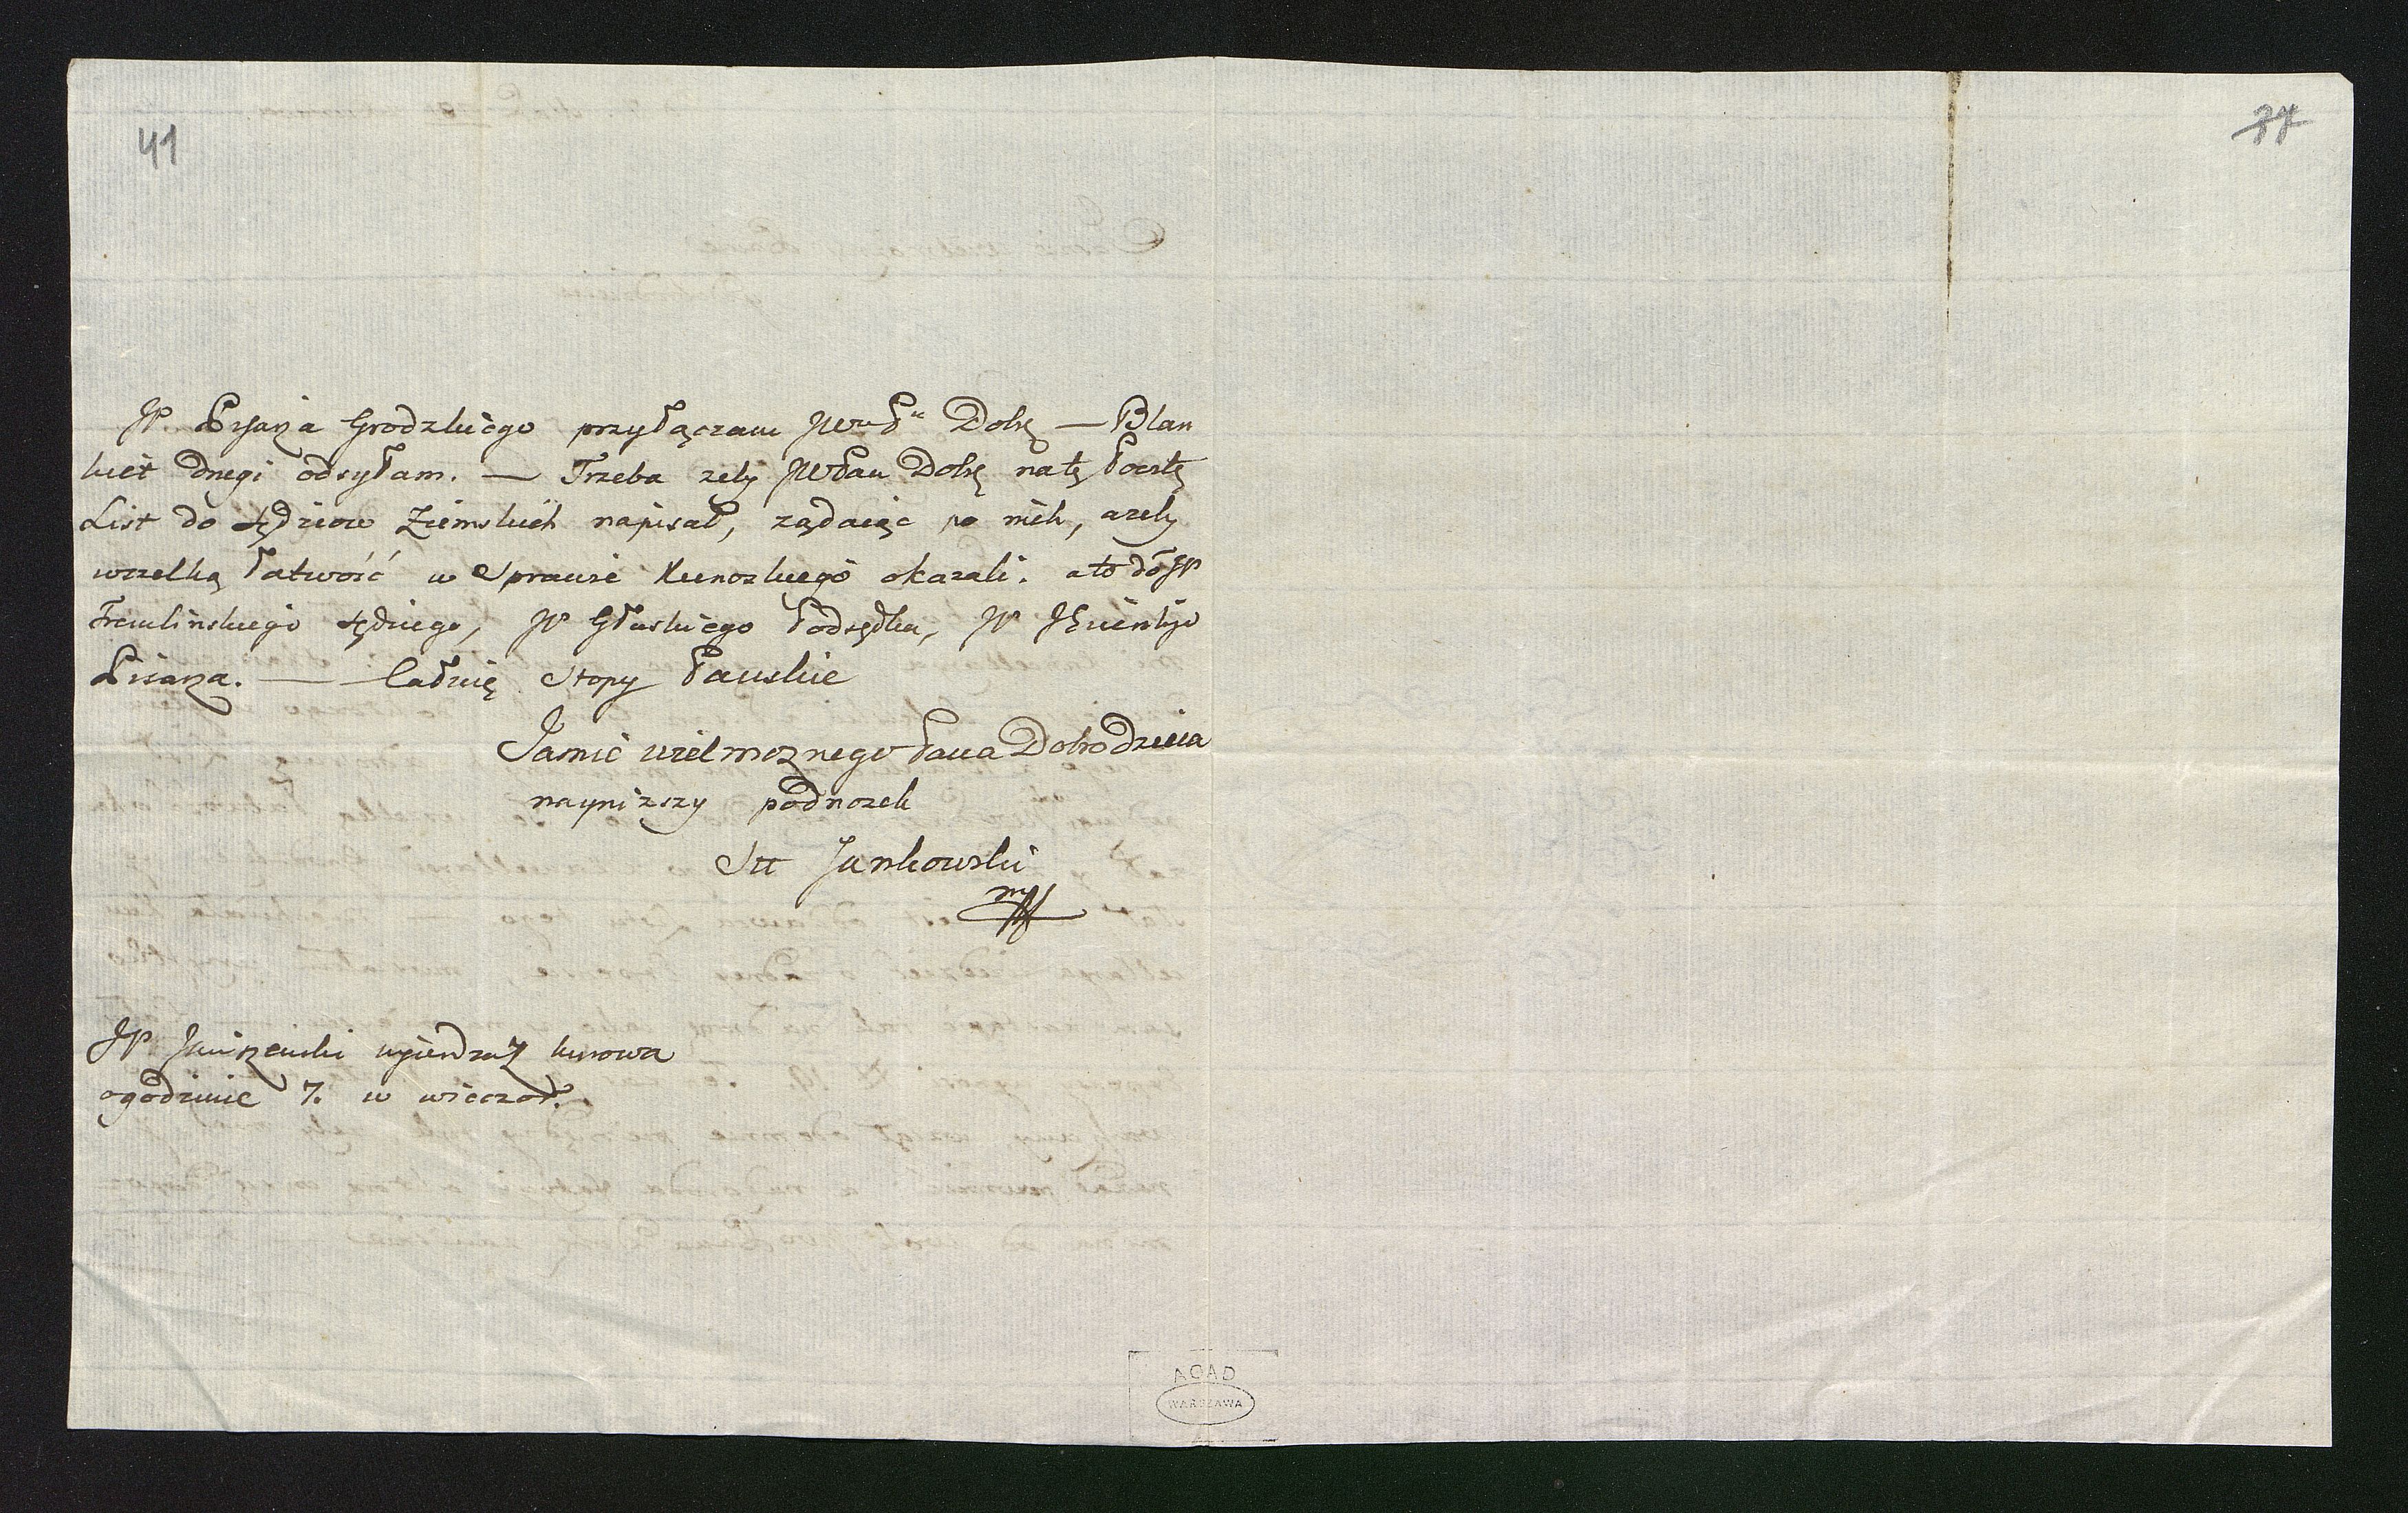 41
JP. Pisarza Grodzkiego przyłączam JWuPu Dobrę — Blan
kiet drugi odsyłam. — Trzeba zeby JWPan Dobrę natę Pocztę
List do sędziow Ziemskich napisał, ządaiąc po nich, azeby
wszelką łatwość w Sprawie okazali. ato do JP
Tremlinskiego sędziego, JP Głuskiego Podsędka, JP
Pisarza. — Całuię Stopy Pańskie
Jasnie wielmoznego Pana Dobrodzieia
naynizszy podnozek
Stt Jankowski
mpp
JP wyiezdza z kurowa
ogodzinie 7. w wieczor.
ACAD
WARSZAWA